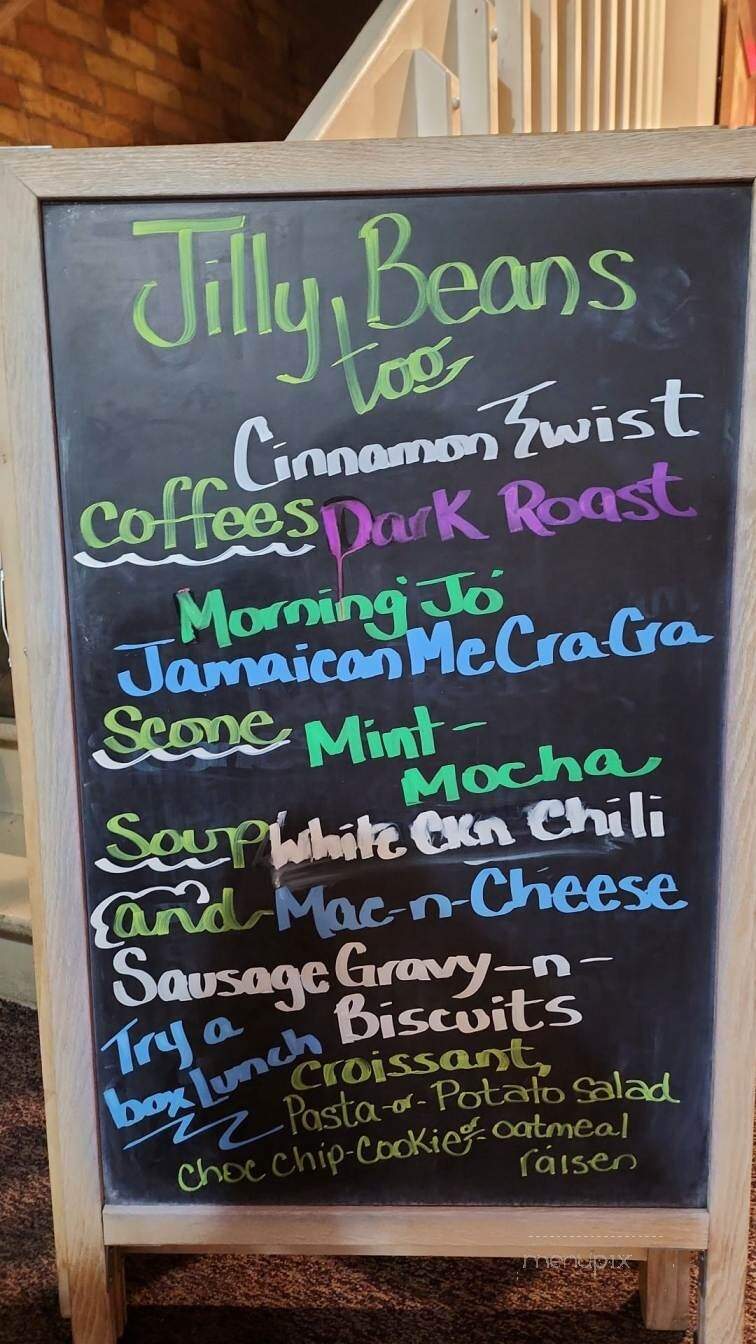 Jilly Beans
too
Cinnamon Twist
Coffees Dark Roast
Morning Jo
Jamaican Me Cra-Cra
Scone Mint-
Mocha
Soup White Ckn Chili
and-Mac-n-Cheese
Sausage Gravy-n-
Biscuits
Try a
box Lunch
Croissant,
Pasta-or-Potato Salad
Choc chip-Cookie-or-oatmeal
raisen
menupix